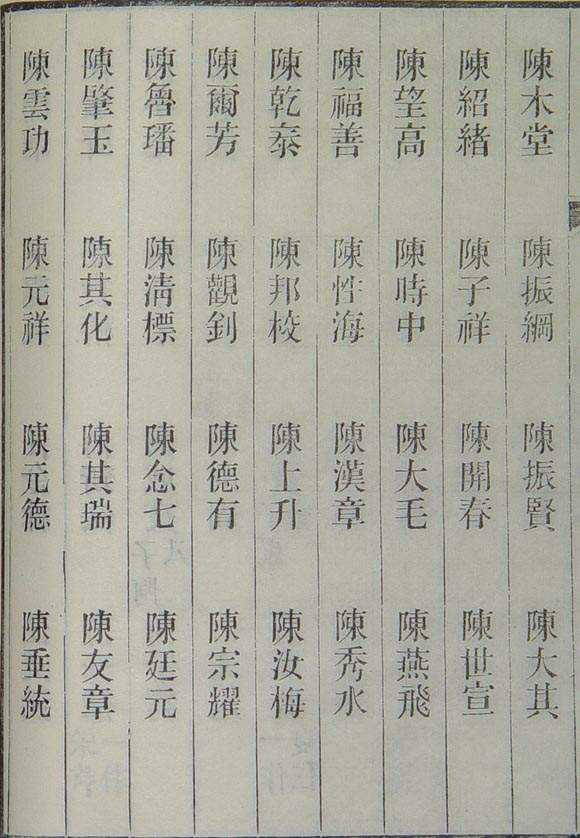 陳木堂 陳振綱 陳振賢 陳大其
陳紹緒 陳子祥 陳開春 陳世宣
陳望高 陳時中 陳大毛 陳燕飛
陳福善 陳性海 陳漢章 陳秀水
陳乾泰 陳邦校 陳上升 陳汝梅
陳爾芳 陳觀釗 陳德有 陳宗耀
陳魯璠 陳淸標 陳念七 陳廷元
陳肇玉 陳其化 陳其瑞 陳友章
陳雲功 陳元祥 陳元德 陳垂統